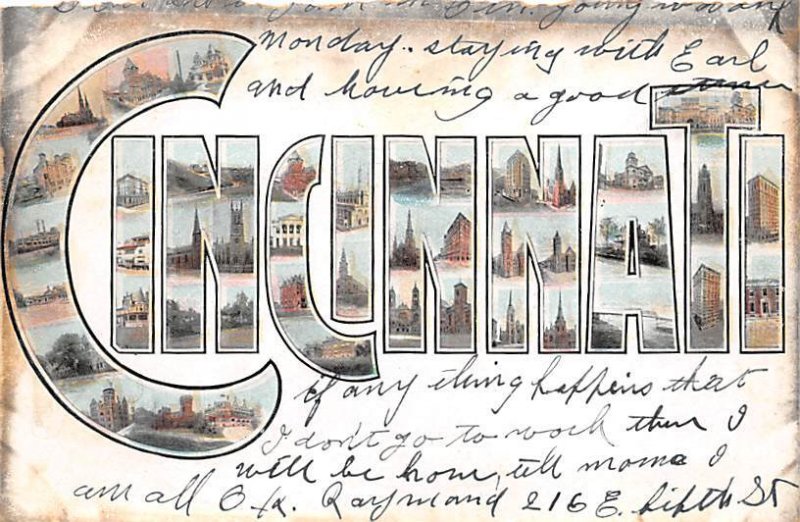 Monday. staying with Earl
and having a good
CINCINNATI
if any thing happens that
I don't go to work then I
will be home, tell mama I
am all O.K. Raymond 216 E. Fifth St